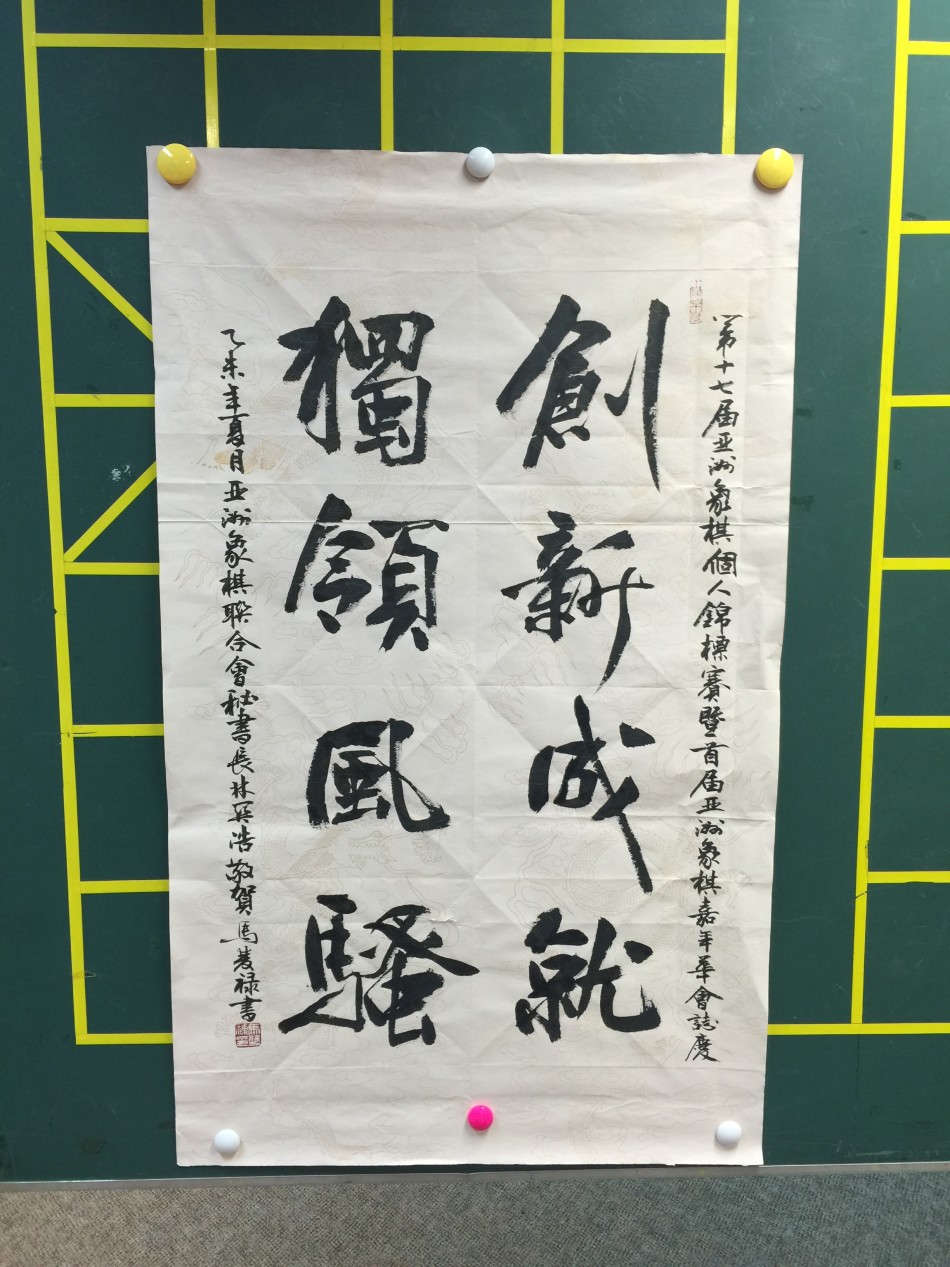 第十七届亚洲象棋個人錦標賽暨首届亚洲象棋嘉年華會誌慶
創新成就
獨領風騷
乙未年夏月亚洲象棋聯合會秘書長林関浩敬賀馬发禄書